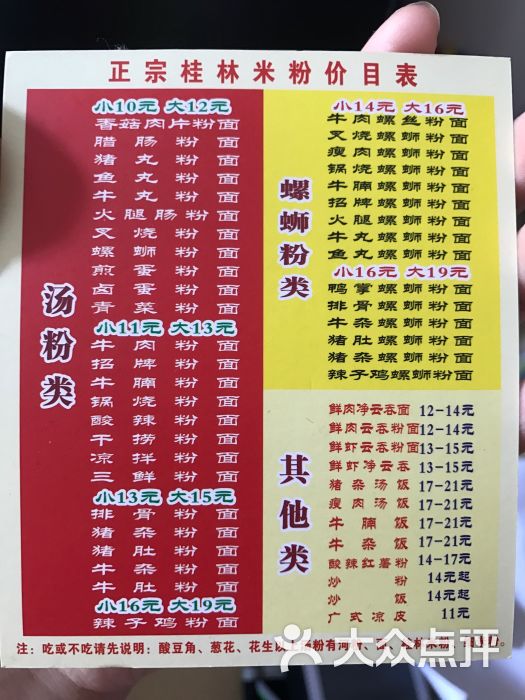 正宗桂林米粉价目表
汤粉类
小10元 大12元
香菇肉片粉面
腊肠粉面
猪丸粉面
鱼丸粉面
牛丸粉面
火腿肠粉面
叉烧粉面
螺蛳粉面
煎蛋粉面
卤蛋粉面
青菜粉面
小11元 大13元
牛肉粉面
招牌粉面
牛腩粉面
锅烧粉面
酸辣粉面
干捞粉面
凉拌粉面
三鲜粉面
小13元 大15元
排骨粉面
猪杂粉面
猪肚粉面
牛杂粉面
牛肚粉面
小16元 大19元
辣子鸡粉面
螺蛳粉类
小14元 大16元
牛肉螺丝粉面
叉烧螺蛳粉面
瘦肉螺蛳粉面
锅烧螺蛳粉面
牛腩螺蛳粉面
招牌螺蛳粉面
火腿螺蛳粉面
牛丸螺蛳粉面
鱼丸螺蛳粉面
小16元 大19元
鸭掌螺蛳粉面
排骨螺蛳粉面
牛杂螺蛳粉面
猪肚螺蛳粉面
猪杂螺蛳粉面
辣子鸡螺蛳粉面
其他类
鲜肉净云吞面 12-14元
鲜肉云吞粉面 12-14元
鲜虾云吞粉面 13-15元
鲜虾净云吞 13-15元
猪杂汤饭 17-21元
瘦肉汤饭 17-21元
牛腩饭 17-21元
牛杂饭 17-21元
酸辣红薯粉 14-17元
炒粉 14元起
炒饭 14元起
广式凉皮 11元
注：吃或不吃请先说明：酸豆角、葱花、花生以上汤粉有河粉、面、桂林米粉
大众点评